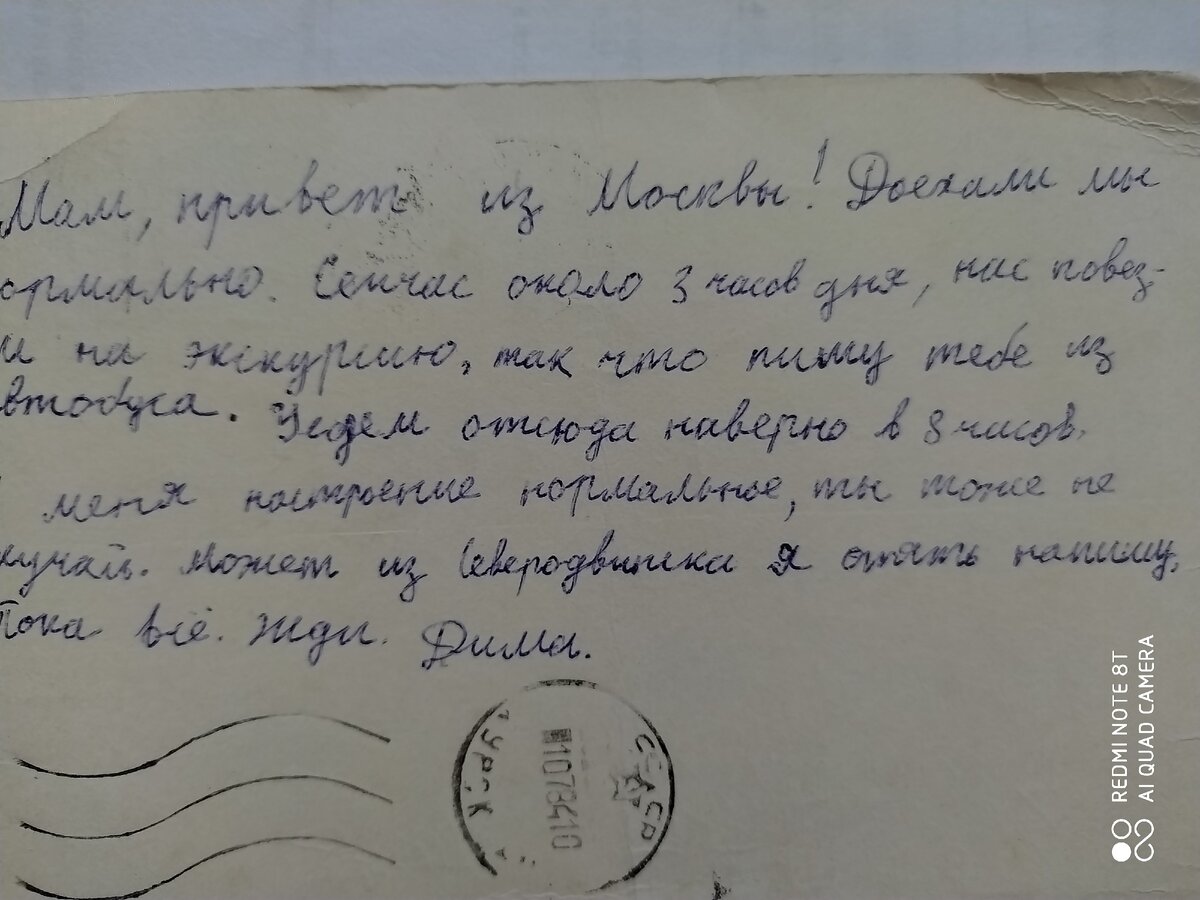 Мам, привет из Москвы! Доехали мы
ормально. Сейчас около 3 часов дня, нас повез-
и на экскурсию, так что пишу тебе из
втобуса. Уедем отсюда наверно в 8 часов.
меня настроение нормальное, ты тоже не
кучай. Может из Северодвинска я опять напишу.
Пока всё. Жди. Дима.
СССР
КУРСК
REDMI NOTE 8T
AI QUAD CAMERA